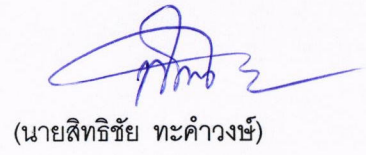 (นายสิทธิชัย ทะคำวงษ์)